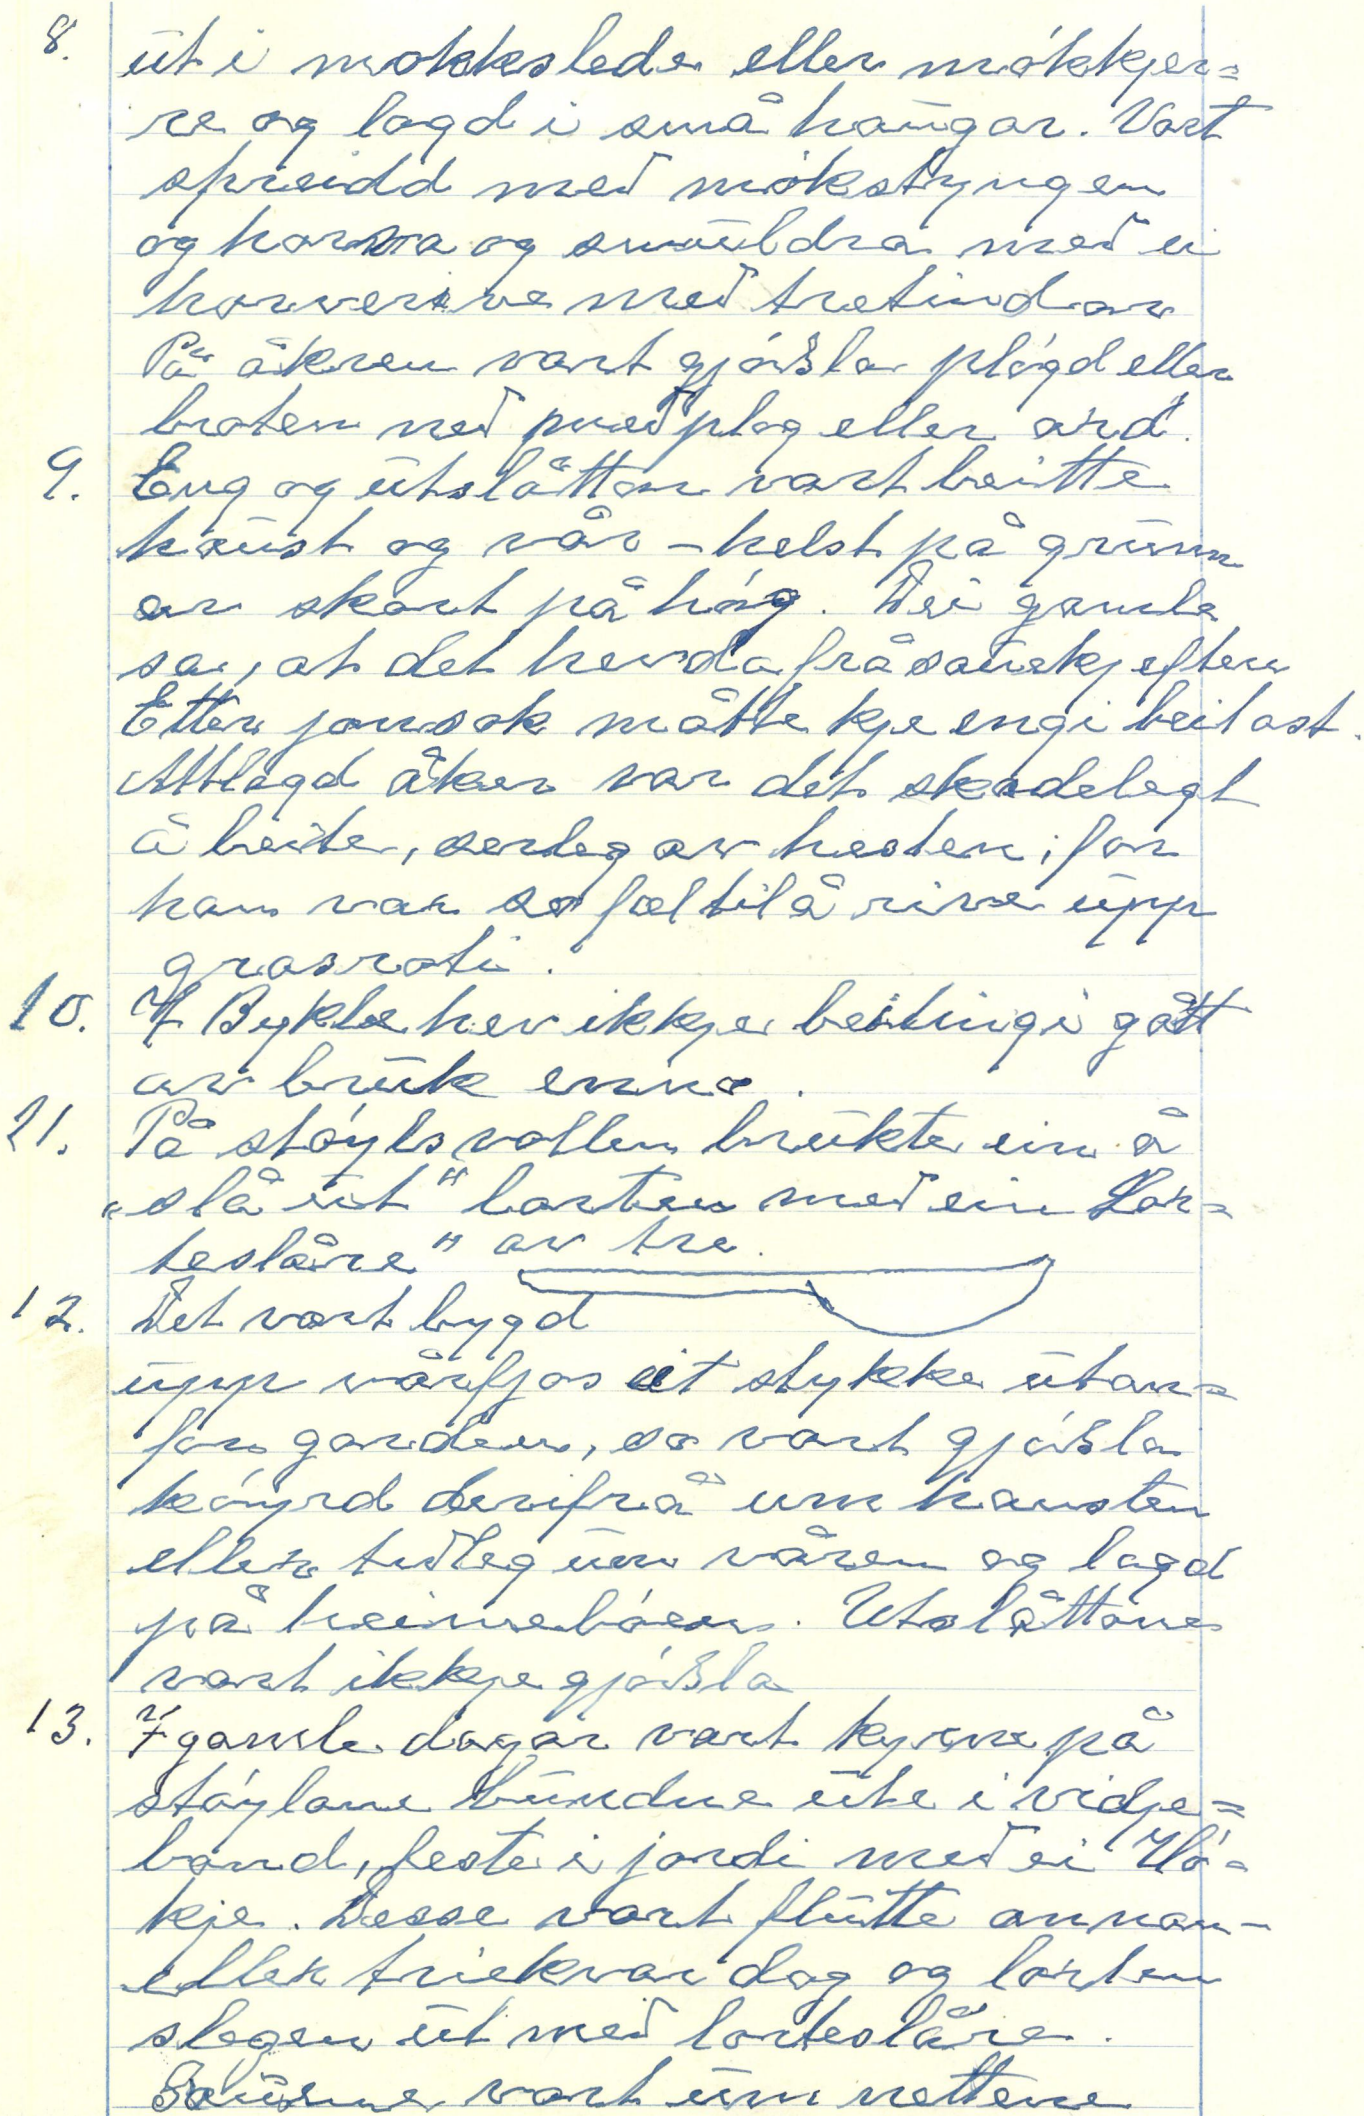 8. út i mokkslede eller mókkjer=
re og lagd i små haugar. Vart
spreidd med mókstyngen
og harva og smuldra med ei
harverive med tretindar
På åkren vart gjødsla pløgd eller
broten ned med plog eller ard.
9. Eng og utslåttar vart beitte
haust og vår - helst på grunn
av skort på høg. Dei gamle
sa, at det hevda frå sauekjeften
Etter jonsok måtte kje engi beitast.
Attlagd åker var det skadelegt
å beite, serleg av hesten, for
han var so fæl til å rive upp
grasroti.
10. I Bykle hev ikkje beitingi gått
av bruk enno.
11. På støylsvollen brukte ein å
„slå ut" lorten med ein Lor=
teslåre" av tre.
12. Det vart bygd
upp vårfjos eit stykke utan=
for garden, so vart gjødsla
køyrd derifrå um hausten
eller tidleg um våren og lagd
på heimebøen. Utslåttane
vart ikkje gjødsla
13. I gamle dagar vart kyrne på
støylane bundne ute i vidje=
band, feste i jordi med ei Hó=
kje. Desse vart flutte annan-
eller triekvar dag og lorten
slegen ut med lorteslåre.
Sauene vart um nettene